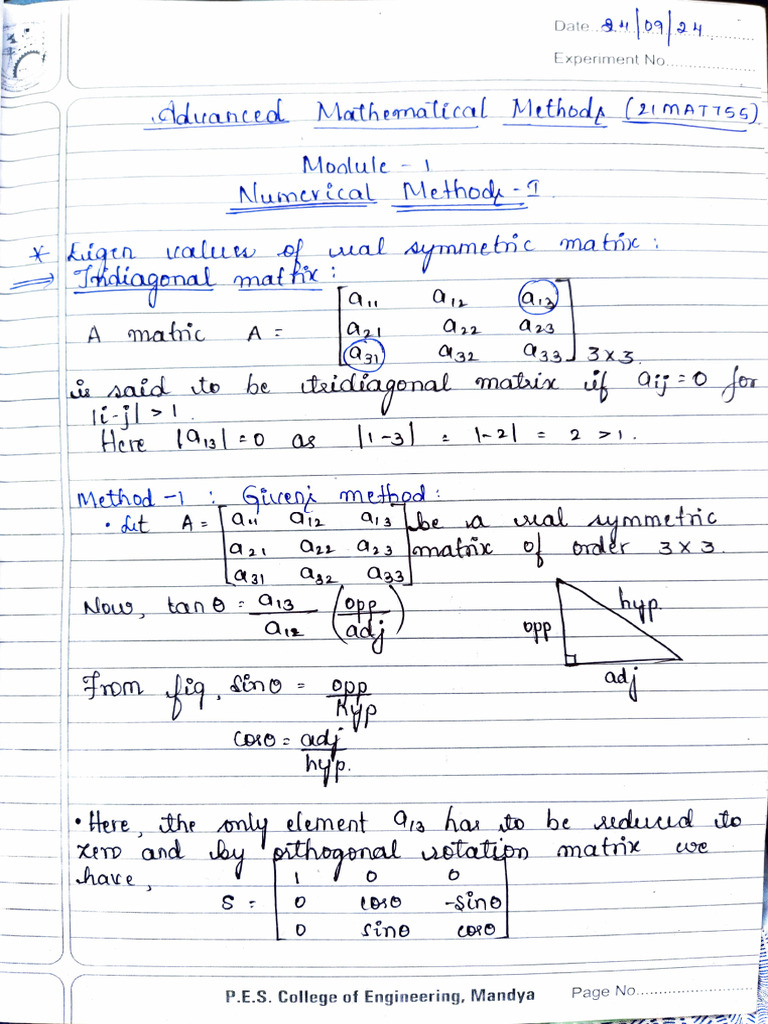 Date 24/09/24
Experiment No.
Advanced Mathematical Methods (21MAT755)
Module - 1
Numerical Methods - I
* Eigen values of real symmetric matrix :
⇒ Tridiagonal matrix :
A matric A = [a11 a12 a13
a21 a22 a23
a31 a32 a33] 3×3
is said to be tridiagonal matrix if aij = 0 for
|i-j| > 1.
Here |a13| = 0 as |1-3| = |-2| = 2 > 1.
Method - 1 : Givens method :
• Let A = [a11 a12 a13 be a real symmetric
a21 a22 a23 matrix of order 3×3.
a31 a32 a33]
Now, tanθ = a13/a12 (opp/adj)
opp hyp.
adj
From fig, sinθ = opp/hyp
cosθ = adj/hyp.
• Here, the only element a13 has to be reduced to
zero and by orthogonal rotation matrix we
have,
S = [1 0 0
0 cosθ -sinθ
0 sinθ cosθ]
P.E.S. College of Engineering, Mandya Page No.